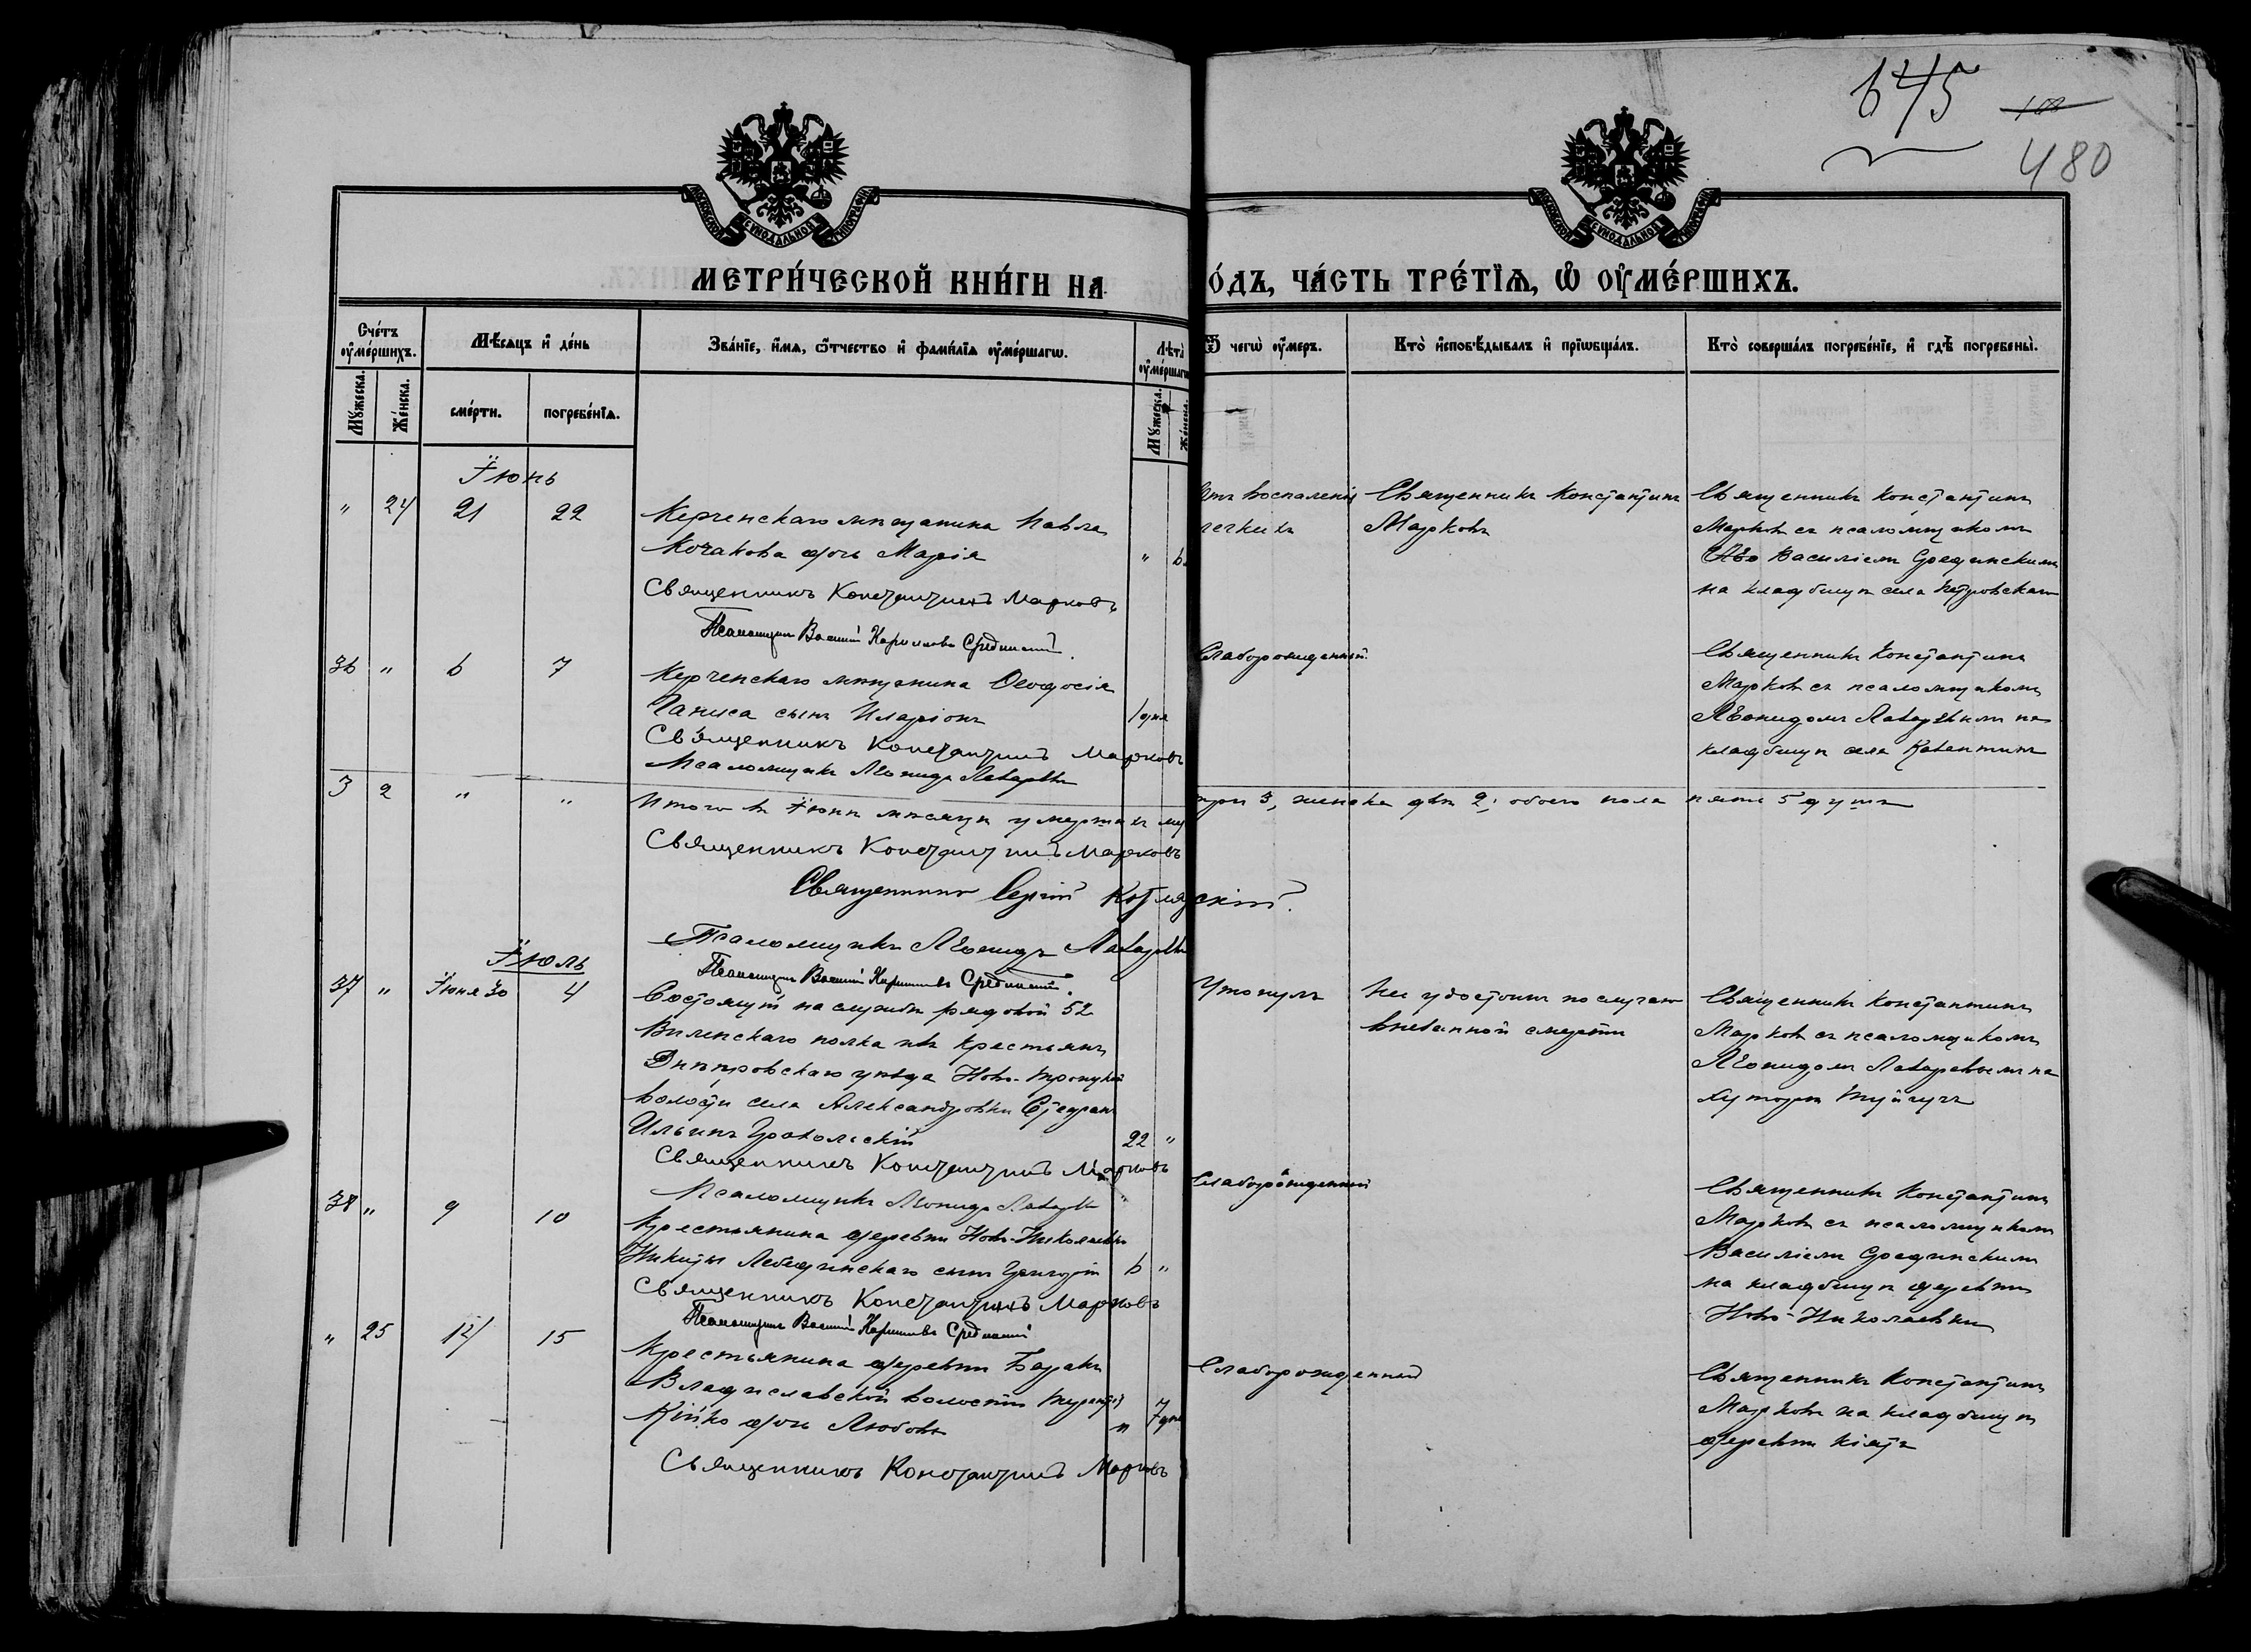 645
480
МЕТРИ́ЧЕСКОЙ КНИ́ГИ НА
О́ДЪ, ЧА́СТЬ ТРЕ́ТІѦ, Ѡ ОУ҆МЕ́РШИХЪ.
Сче́тъ оу҆ме́ршихъ.
Мѣ́сяцъ и҆ де́нь
Зва́нїе, и҆́мѧ, ѻ҆́тчество и҆ фами́лїѧ оу҆ме́ршагѡ.
Лѣта̀ оу҆ме́ршагѡ
Ѿ чегѡ̀ оу҆́меръ.
Кто̀ и҆сповѣ́дывалъ и҆ прїѡбща́лъ.
Кто̀ соверша́лъ погребе́нїе, и҆ гдѣ̀ погребены̀.
Мꙋ́жеска.
Же́нска.
сме́рти.
погребе́нїѧ.
Мꙋ́жеска.
Же́нска.
Іюнь
" 24 21 22
Керченскаго мѣщанина Павла
Кочакова дочь Марія
" 6
Священникъ Константинъ Марковъ
Псаломщикъ Василій Карпиловъ Срединскій.
Отъ воспаленія
легкихъ
Священникъ Константинъ
Марковъ
Священникъ Константинъ
Марковъ съ псаломщикомъ
Василіемъ Срединскимъ
на кладбищѣ села Петровскаго
36 " 6 7
Керченскаго мѣщанина Ѳеодосія
сынъ Иларіонъ
1 дня
Священникъ Константинъ Марковъ
Псаломщикъ Леонидъ Лазаревъ
Слаборожденный.
Священникъ Константинъ
Марковъ съ псаломщикомъ
Леонидомъ Лазаревымъ на
кладбищѣ села Катантинъ
3 2 " "
Итого въ Іюнѣ мѣсяцѣ умершихъ му
три 3, женска двѣ 2; обоего пола пять 5 душъ
Священникъ Константинъ Марковъ
Священникъ Сергій
Псаломщикъ Леонидъ Лазаревъ
Псаломщикъ Василій Карпиловъ Срединскій.
Іюль
37 " Іюня 30 4
Состоящій на службѣ рядовой 52
Виленскаго полка изъ крестьянъ
Днѣпровскаго уѣзда Ново-Троицкой
волости села Александровки Стефанъ
Ильинъ
22 "
Священникъ Константинъ Марковъ
Псаломщикъ Леонидъ Лазаревъ
Утонулъ
Не удостоенъ по случаю
внезапной смерти
Священникъ Константинъ
Марковъ съ псаломщикомъ
Леонидомъ Лазаревымъ на
хуторѣ
38 " 9 10
Крестьянина деревни Ново-Николаевки
Никиты Лебединскаго сынъ Григорій
6 "
Священникъ Константинъ Марковъ
Псаломщикъ Василій Карпиловъ Срединскій
Слаборожденный
Священникъ Константинъ
Марковъ съ псаломщикомъ
Василіемъ Срединскимъ
на кладбищѣ деревни
Ново-Николаевки
" 25 14 15
Крестьянина деревни Баракъ
Владиславской волости
Кійко дочь Любовь
" 7 дн
Священникъ Константинъ Марковъ
Слаборожденный
Священникъ Константинъ
Марковъ на кладбищѣ
деревни Кіятъ